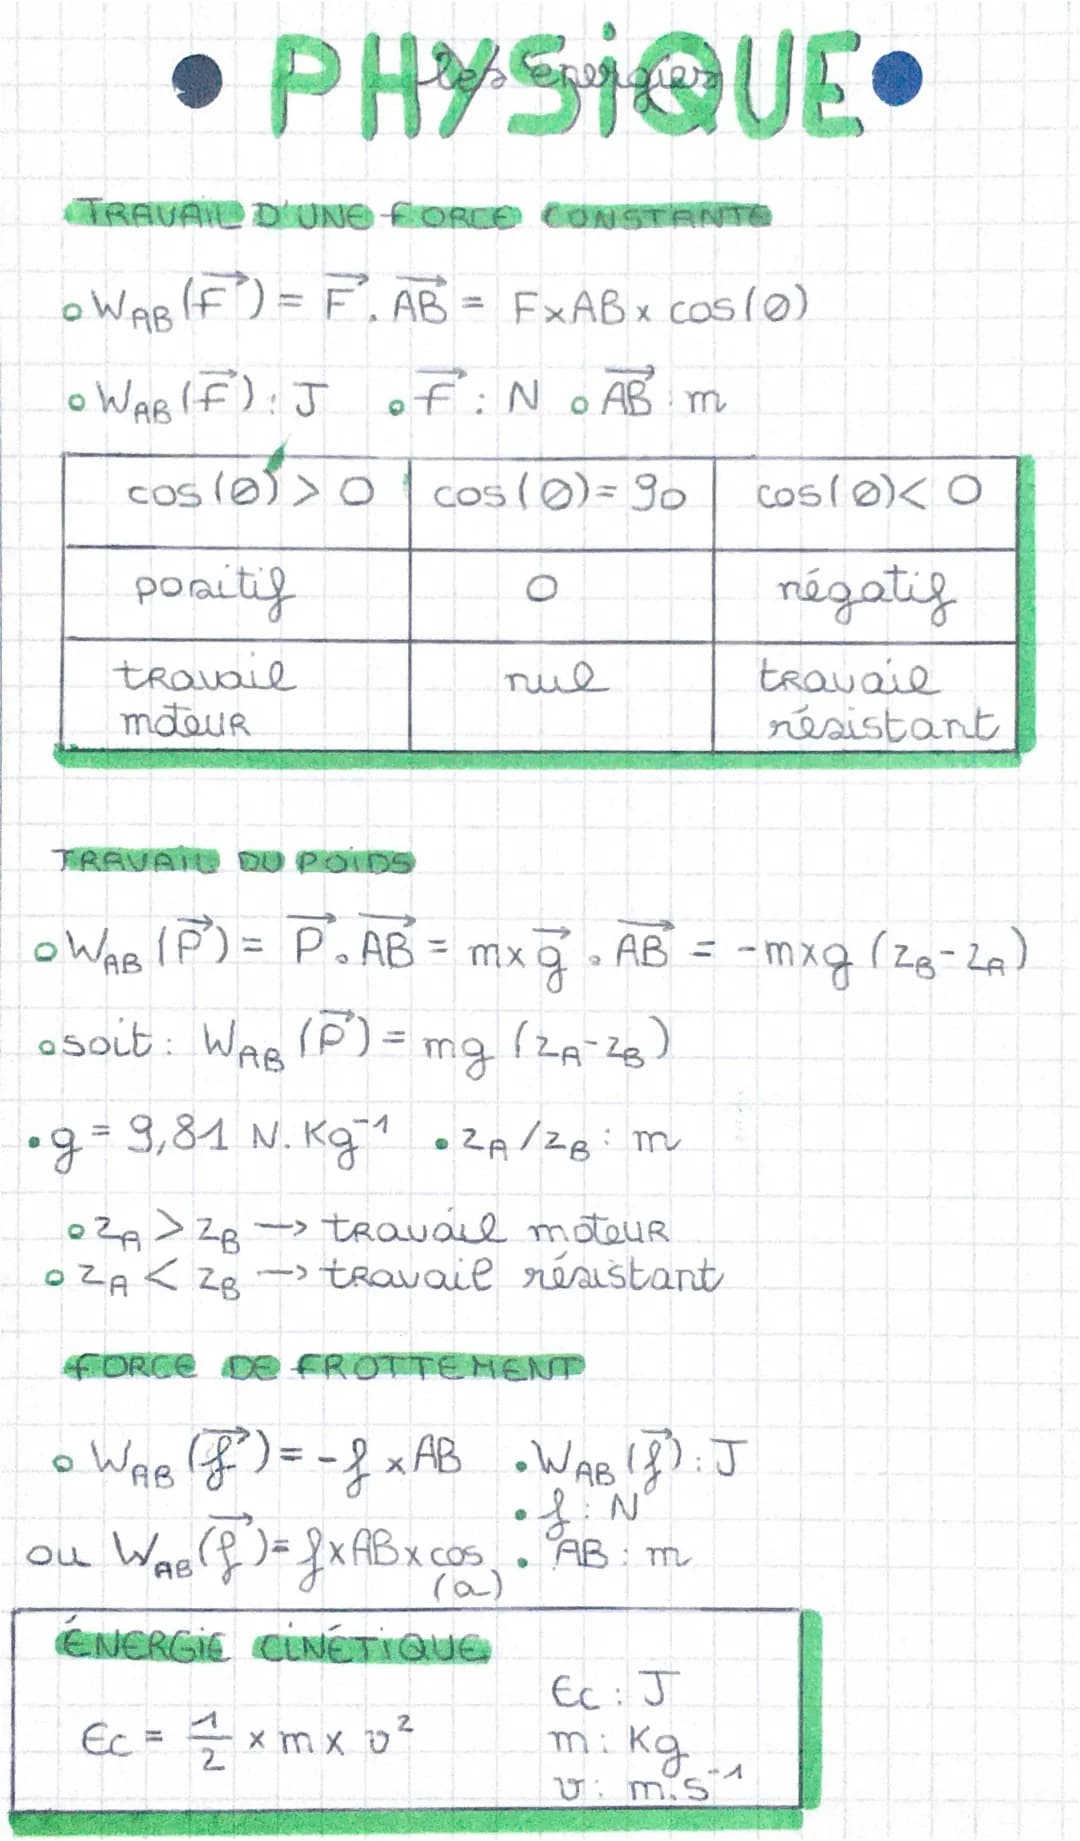 • PHYSiQUE •
les énergies
TRAVAIL D'UNE FORCE CONSTANTE
∘ W_AB (F⃗) = F⃗ . AB⃗ = F x AB x cos(Ø)
∘ W_AB (F⃗) : J ∘ F⃗ : N ∘ AB⃗ : m
cos(Ø) > 0 cos(Ø) = 90 cos(Ø) < 0
positif 0 négatif
travail moteur nul travail résistant
TRAVAIL DU POIDS
∘ W_AB (P⃗) = P⃗ . AB⃗ = m x g⃗ . AB⃗ = -m x g (z_B - z_A)
∘ soit : W_AB (P⃗) = mg (z_A - z_B)
• g = 9,81 N. Kg⁻¹ • z_A / z_B : m
∘ z_A > z_B → travail moteur
∘ z_A < z_B → travail résistant
FORCE DE FROTTEMENT
∘ W_AB (f⃗) = -f x AB • W_AB (f⃗) : J
• f : N
ou W_AB (f⃗) = f x AB x cos (a) • AB : m
ÉNERGIE CINÉTIQUE
Ec : J
Ec = 1/2 x m x v² m : Kg
v : m.s⁻¹